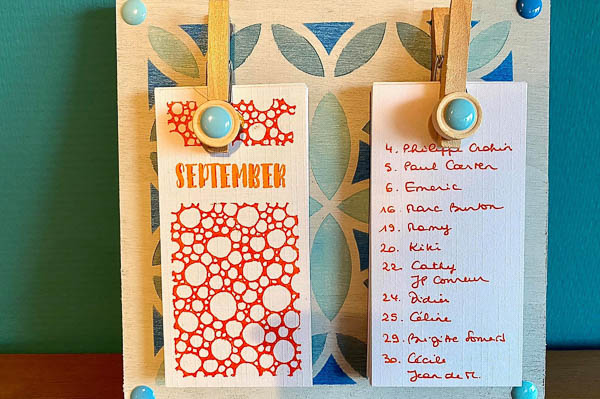 SEPTEMBER
4. Philippe
5. Paul
6. Emeric
16. Marc Burton
19. Ramy
20. Kiki
22. Cathy
JP
24. Didier
25. Céline
29. Brigitte
30. Cécile
Jean de M.